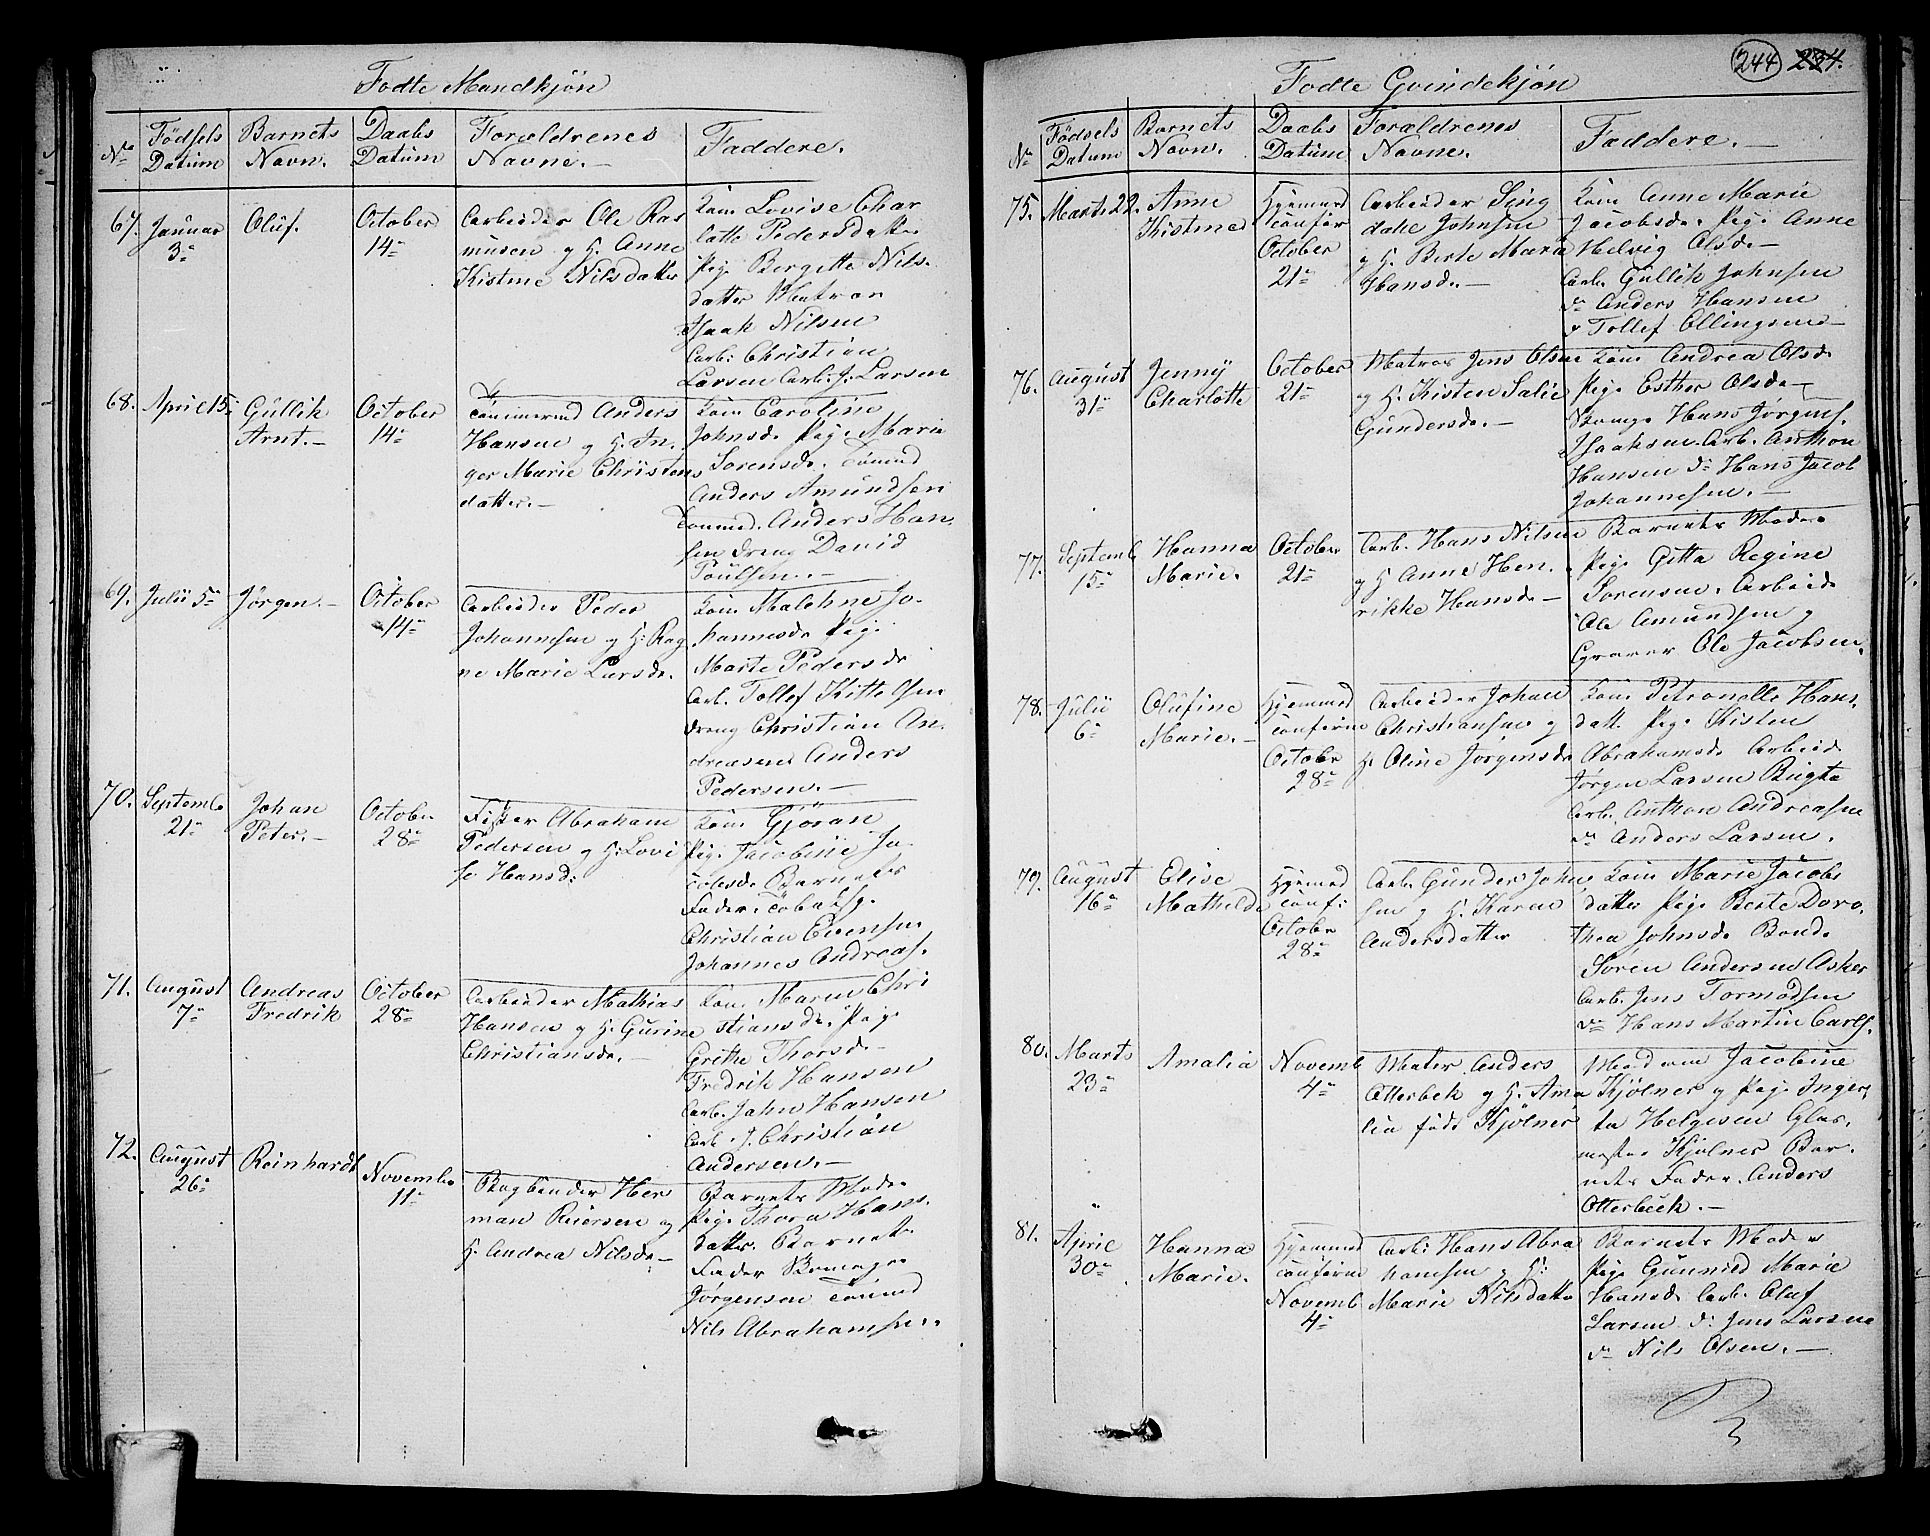 Fødte Mandkjøn
No
Fødsels Datum
Barnets Navn.
Daabs Datum
Forældrenes Navne.—
Faddere.
67. Januar 3-
Oluf.
October 14-
Arbeider Ole Ras
musen og H. Anne
Kistine Nilsdatter
Kone Lovise Char
lotte Pedersdatt.
Pige Bergitte Nils-
datter Matros
Isaak Nilsen
Arb: Christian
Larsen Arb: J: Larsen
68. April 15-
Gullik
Arnt.—
October 14-
Tømmermd Anders
Hansen og H. In-
ger Marie Christens
datter.—
Kone Caroline
Johnsd. Pige Marie
Sorensd. Tømmd
Anders Amundsen
Tømmd. Anders Han-
sen dreng David
Poulsen.—
69. Julii 5-
Jørgen.—
October 14-
Arbeider Peder
Johannesen og H: Rag
ne Marie Larsd.
Kone Malehne Jo-
hannesd. Pige
Marte Pedersd.
Arb. Tollef Kittelsen
dreng Christian An-
dreasen Anders
Pedersen.—
70. Septemb 21-
Johan
Peter.—
October 28-
Fisker Abraham
Pedersen og H: Lovi
se Hansd:
Kone Gjöran
Pige Jacobine Ja-
cobsd. Barnets
Fader. Tobaksf.
Christian Evensen
Johannes Andreas.
71. August 7-
Andreas
Fredrik
October 28-
Arbeider Mathias
Hansen og H: Gurine
Christiansd.—
Kone Maren Chri
stiansd. Pige
Grethe Thorsd.—
Fredrik Hansen
Arb. John Hansen
Arb. J. Christian
Andersen.—
72. August 26-
Reinhardt
Novemb. 11-
Bogbinder Her
man Reiersen og
H. Andrea Nilsd.—
Barnets Moder
Pige Thora Hans-
datter. Barnets
Fader
Jørgensen Tømmd
Nils Abrahamsen.
244 234.
Fødte Qvindekjön
No
Fødsels Datum
Barnets Navn.
Daabs Datum
Forældrenes Navne.
Faddere.—
75. Marts 22.
Anne
Kistine
Hjemmed
confir
October
21-
Arbeider Sing
dahl Johnsen
og H. Berte Maria
Hansd.—
Kone Anne Marie
Jacobsd. Pige Anne
Helvig Olsd.—
Arb. Gullik Johnsen
do Anders Hansen
& Tollef Ellingsen—
76. August 31-
Jenny
Charlotte
October
21-
Matros Jens Olsen
og H. Kisten Salie
Gundersd.—
Kone Andrea Olsd.
Pige Esther Olsd.—
Hans Jørgens.
Isaaksen Arb. Anthon
Hansen do Hans Jacob
Johannesen.—
77. Septemb 15-
Hanna
Marie.
October
21-
Arb. Hans Nilsen
og H. Anne Hen-
rikke Hansd.—
Barnets Moder
Pige Gitta Regine
Sorensen. Arbeid.
Ole Amundsen og
Graver Ole Jacobsen.
78. Julii 6-
Olufine
Marie.—
Hjemmed
confirm
October
28-
Arbeider Johan
Christiansen og
H. Oline Jorgensd.
Kone Petronelle Hans-
datt. Pige Kisten
Abrahamsd. Arbeid.
Jørgen Larsen Bugta
Arb. Anthon Andreasen
do Anders Larsen.
79. August 16-
Elise
Mathilde
Hjemmed
conf:
October
28-
Arb. Gunder John-
sen og H. Karen
Andersdatter
Kone Marie Jacobs
datter Pige Berte Doro-
thea Johnsd. Bonde
Søren Andersen Asker
Arb. Jens Tormodsen
do Hans Martin Carls.
80. Marts 23-
Amalia
Novemb
4-
Mater. Anders
Otterbek og H. Ama
lia født Kjølner
Madam Jacobine
Kjølner og Pige Inger
ta Helgesen Glas-
mester Kjølner Bar-
nets Fader. Anders
Otterbeck.—
81. April 30-
Hanna
Marie.
Hjemmed
confirm
Novemb
4-
Arb: Hans Abra
hamsen og H:
Marie Nilsdatter
Barnets Moder
Pige Gunnild Marie
Hansd. Arb. Oluf
Larsen do Jens Larsen
do Nils Olsen.—